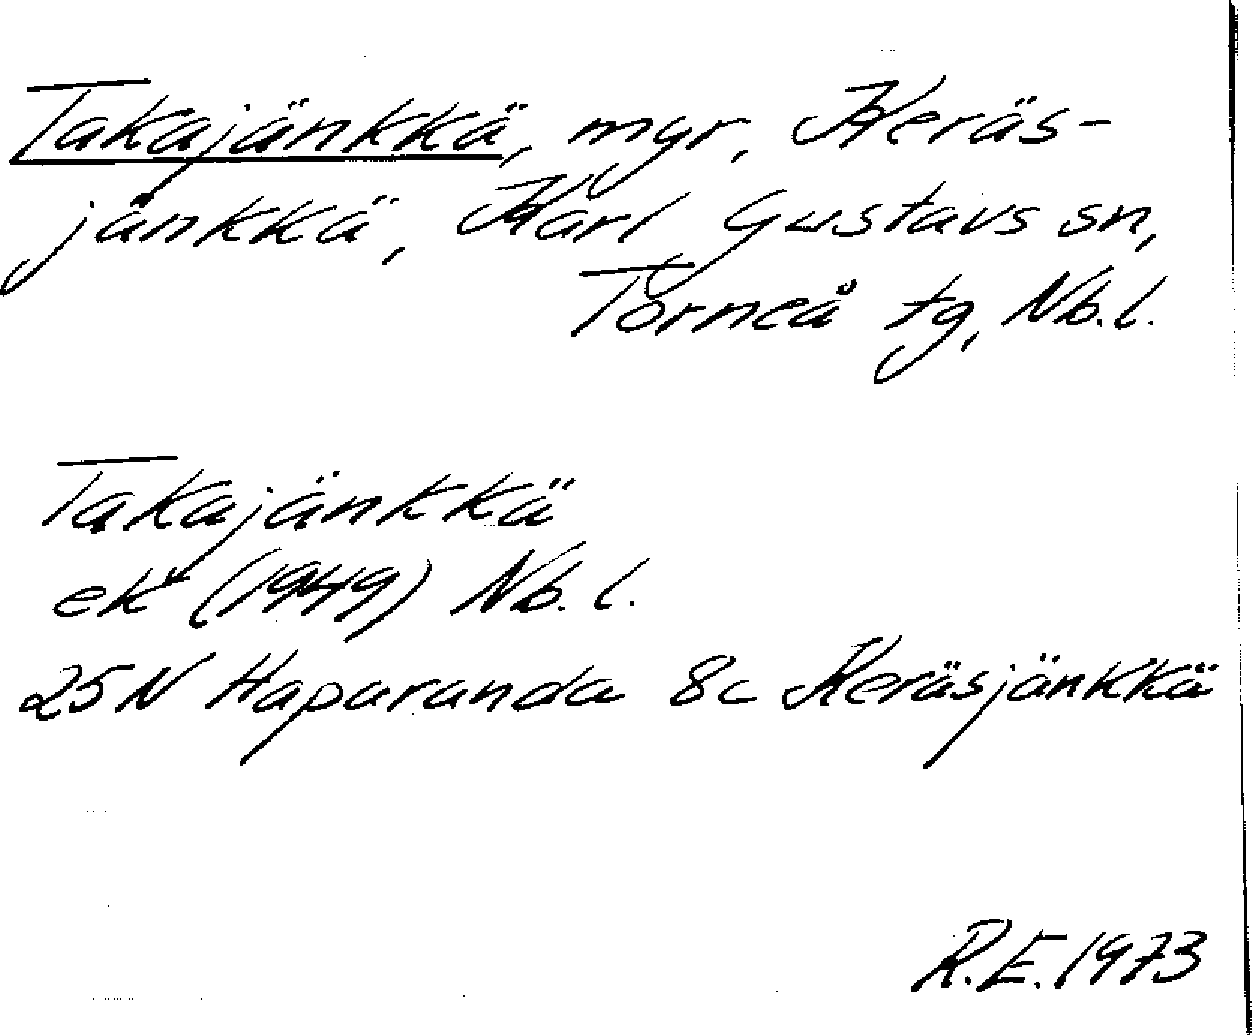 Takajänkkä, myr, Keräs-
jänkkä, Karl Gustavs sn,
Torneå tg, Nb.l.
Takajänkkä
ek (1949) Nb.l.
25N Haparanda 8c Keräsjänkkä
R.E. 1973